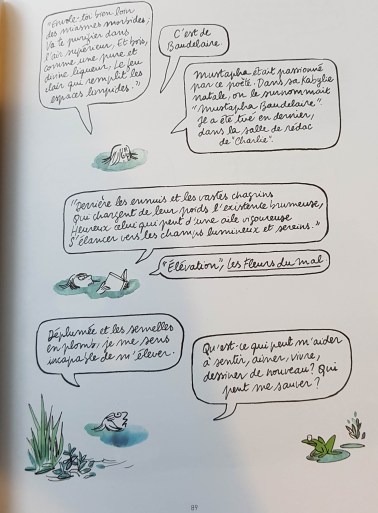 "Envole-toi bien loin
des miasmes morbides ;
Va te purifier dans
l'air supérieur, Et bois,
comme une pure et
divine liqueur, Le feu
clair qui remplit les
espaces limpides."
C'est de
Baudelaire.
Mustapha était passionné
par ce poète. Dans sa Kabylie
natale, on le surnommait
"Mustapha Baudelaire".
Il a été tué en dernier,
dans la salle de rédac
de "Charlie".
"Derrière les ennuis et les vastes chagrins
Qui chargent de leur poids l'existence brumeuse,
Heureux celui qui peut d'une aile vigoureuse
S'élancer vers les champs lumineux et sereins."
"Élévation", Les Fleurs du mal
Déplumée et les semelles
en plomb, je me sens
incapable de m'élever.
Qu'est-ce qui peut m'aider
à sentir, aimer, vivre,
dessiner de nouveau ? Qui
peut me sauver ?
89